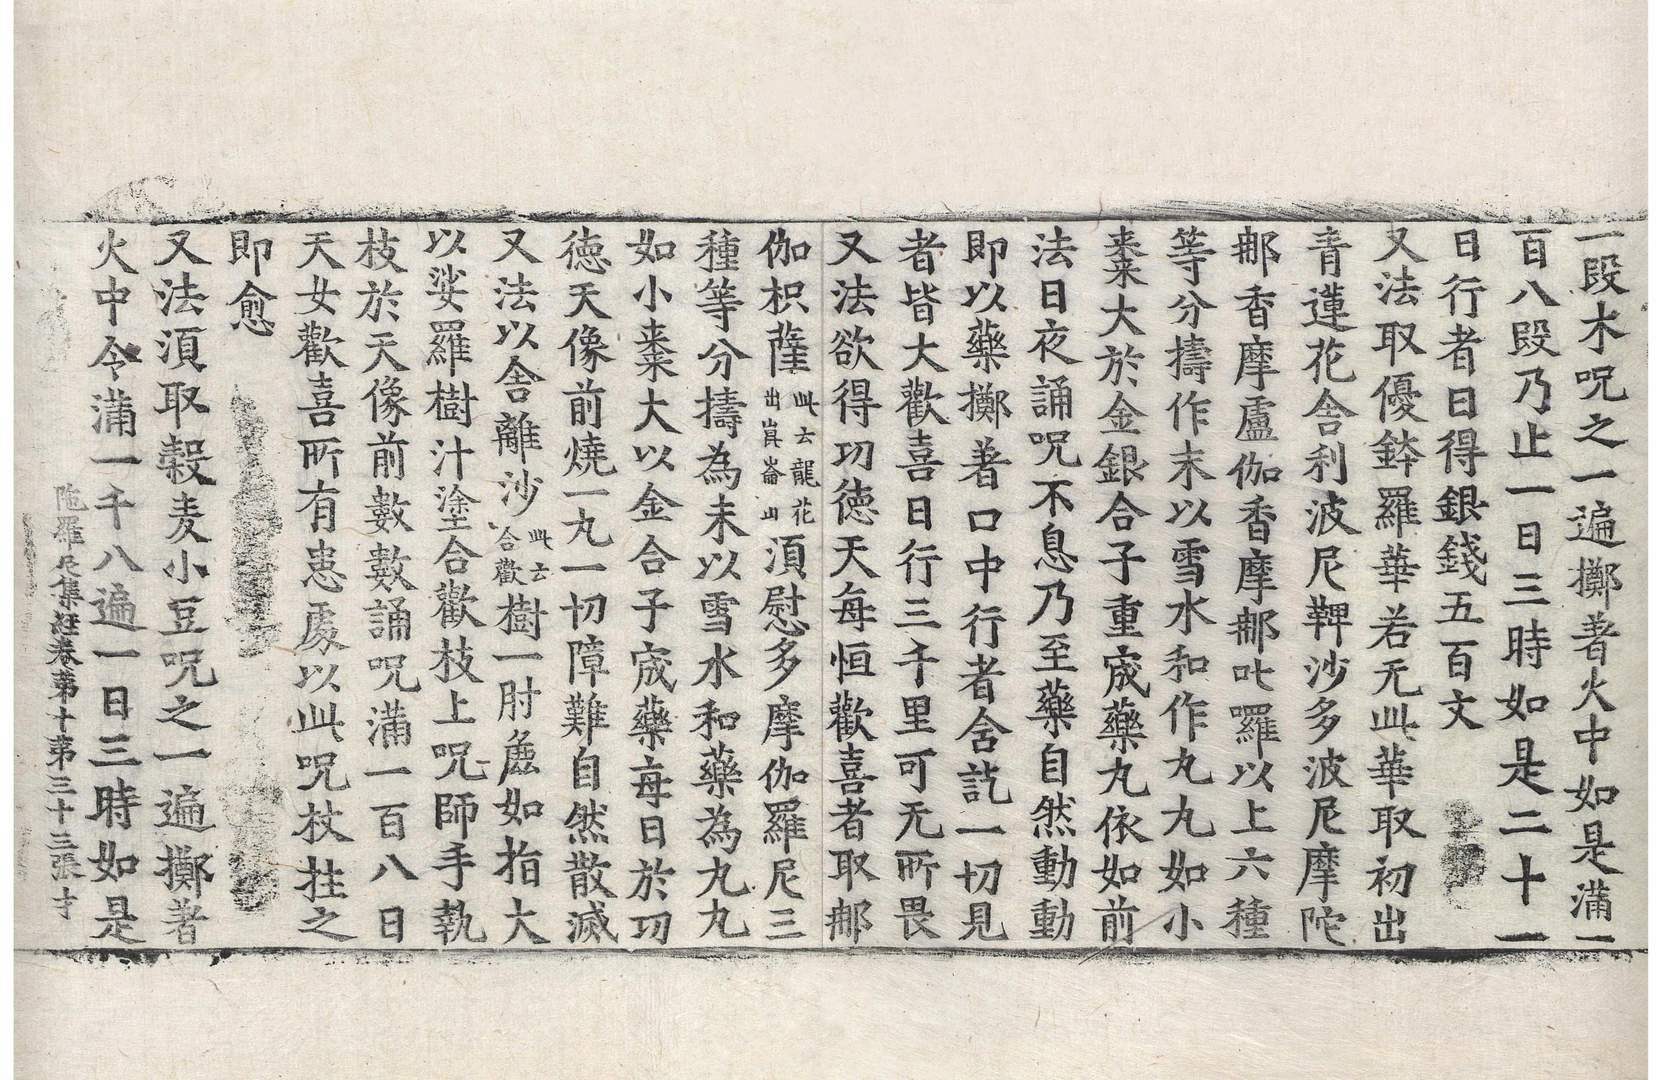 一段木呪之一遍擲著火中如是滿一
百八段乃止一日三時如是二十一
日行者日得銀錢五百文
又法取優鉢羅華若无此華取初出
青蓮花舍利波尼鞞沙多波尼摩陀
那香摩盧伽香摩那叱囉以上六種
等分擣作末以雪水和作丸丸如小
棗棗大於金銀合子重宬藥丸依如前
法日夜誦呪不息乃至藥自然動動
即以藥擲著口中行者含訖一切見
者皆大歡喜日行三千里可无所畏
又法欲得功德天每恒歡喜者取那
伽枳薩此云龍花出崑崙山須慰多摩伽羅尼三
種等分擣為末以雪水和藥為丸丸
如小棗大以金合子宬藥每日於功
德天像前燒一丸一切障難自然散滅
又法以舍離沙此云合歡樹一肘麁如指大
以娑羅樹汁塗合歡枝上呪師手執
枝於天像前數數誦呪滿一百八日
天女歡喜所有患處以此呪杖拄之
即愈
又法須取穀麦小豆呪之一遍擲著
火中令滿一千八遍一日三時如是
陁羅尼集経卷第十第三十三張才